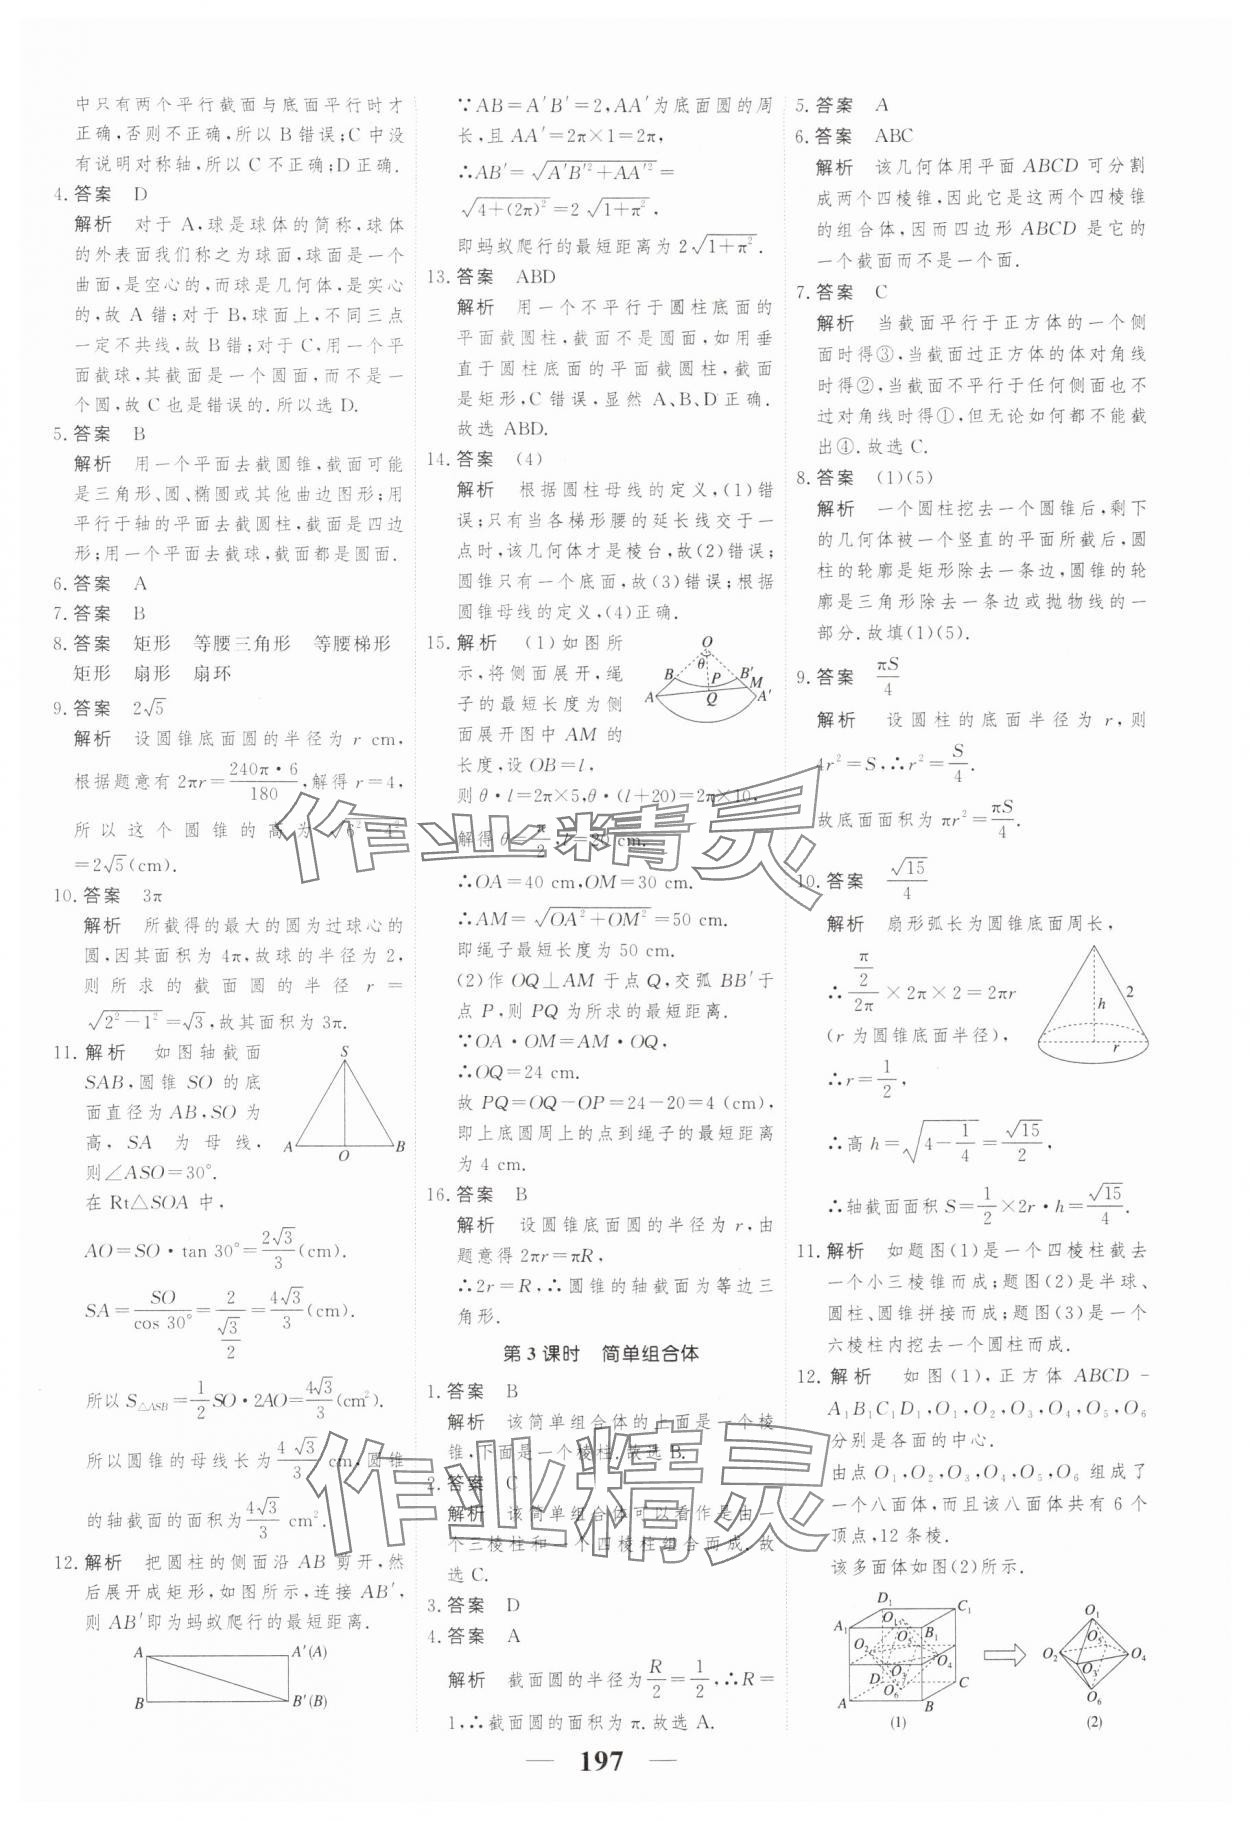 中只有两个平行截面与底面平行时才
正确,否则不正确,所以 B 错误;C 中没
有说明对称轴,所以 C 不正确;D 正确.
4. 答案 D
解析 对于 A,球是球体的简称,球体
的外表面我们称之为球面,球面是一个
曲面,是空心的,而球是几何体,是实心
的,故 A 错;对于 B,球面上,不同三点
一定不共线,故 B 错;对于 C,用一个平
面截球,其截面是一个圆面,而不是一
个圆,故 C 也是错误的.所以选 D.
5. 答案 B
解析 用一个平面去截圆锥,截面可能
是三角形、圆、椭圆或其他曲边图形;用
平行于轴的平面去截圆柱,截面是四边
形;用一个平面去截球,截面都是圆面.
6. 答案 A
7. 答案 B
8. 答案 矩形 等腰三角形 等腰梯形
矩形 扇形 扇环
9. 答案 2√5
解析 设圆锥底面圆的半径为 r cm,
根据题意有 2πr=240π·6/180,解得 r=4,
所以这个圆锥的高为 √(6²-4²)
=2√5(cm).
10. 答案 3π
解析 所截得的最大的圆为过球心的
圆,因其面积为 4π,故球的半径为 2,
则所求的截面圆的半径 r=
√(2²-1²)=√3,故其面积为 3π.
11. 解析 如图轴截面
SAB,圆锥 SO 的底
面直径为 AB,SO 为
高,SA 为母线,
则∠ASO=30°.
在 Rt△SOA 中,
AO=SO·tan 30°=2√3/3(cm).
SA=SO/cos 30°=2/(√3/2)=4√3/3(cm).
所以 S△ASB=1/2 SO·2AO=4√3/3(cm²).
所以圆锥的母线长为 4√3/3 cm,圆锥
的轴截面的面积为 4√3/3 cm².
S
A
O
B
12. 解析 把圆柱的侧面沿 AB 剪开,然
后展开成矩形,如图所示,连接 AB′,
则 AB′即为蚂蚁爬行的最短距离.
A A′(A)
B B′(B)
∵AB=A′B′=2,AA′为底面圆的周
长,且 AA′=2π×1=2π,
∴AB′=√(A′B′²+AA′²)=
√(4+(2π)²)=2√(1+π²),
即蚂蚁爬行的最短距离为 2√(1+π²).
13. 答案 ABD
解析 用一个不平行于圆柱底面的
平面截圆柱,截面不是圆面,如用垂
直于圆柱底面的平面截圆柱,截面
是矩形,C 错误,显然 A、B、D 正确.
故选 ABD.
14. 答案 (4)
解析 根据圆柱母线的定义,(1)错
误;只有当各梯形腰的延长线交于一
点时,该几何体才是棱台,故(2)错误;
圆锥只有一个底面,故(3)错误;根据
圆锥母线的定义,(4)正确.
15. 解析 (1)如图所
示,将侧面展开,绳
子的最短长度为侧
面展开图中 AM 的
长度,设 OB=l,
则 θ·l=2π×5,θ·(l+20)=2π×10,
解得 θ=π/2,l=20 cm.
∴OA=40 cm,OM=30 cm.
∴AM=√(OA²+OM²)=50 cm.
即绳子最短长度为 50 cm.
(2)作 OQ⊥AM 于点 Q,交弧 BB′于
点 P,则 PQ 为所求的最短距离.
∵OA·OM=AM·OQ,
∴OQ=24 cm.
故 PQ=OQ-OP=24-20=4 (cm),
即上底圆周上的点到绳子的最短距离
为 4 cm.
O
θ
B P B′ M
A Q A′
16. 答案 B
解析 设圆锥底面圆的半径为 r,由
题意得 2πr=πR,
∴2r=R,∴圆锥的轴截面为等边三
角形.
第 3 课时 简单组合体
1. 答案 B
解析 该简单组合体的上面是一个棱
锥,下面是一个棱柱.故选 B.
2. 答案 C
解析 该简单组合体可以看作是由一
个三棱柱和一个四棱柱组合而成.故
选 C.
3. 答案 D
4. 答案 A
解析 截面圆的半径为 R/2=1/2,∴R=
1,∴截面圆的面积为 π.故选 A.
5. 答案 A
6. 答案 ABC
解析 该几何体用平面 ABCD 可分割
成两个四棱锥,因此它是这两个四棱锥
的组合体,因而四边形 ABCD 是它的
一个截面而不是一个面.
7. 答案 C
解析 当截面平行于正方体的一个侧
面时得③,当截面过正方体的体对角线
时得②,当截面不平行于任何侧面也不
过对角线时得①,但无论如何都不能截
出④.故选 C.
8. 答案 (1)(5)
解析 一个圆柱挖去一个圆锥后,剩下
的几何体被一个竖直的平面所截后,圆
柱的轮廓是矩形除去一条边,圆锥的轮
廓是三角形除去一条边或抛物线的一
部分.故填(1)(5).
9. 答案 πS/4
解析 设圆柱的底面半径为 r,则
4r²=S,∴r²=S/4.
故底面面积为 πr²=πS/4.
10. 答案 √15/4
解析 扇形弧长为圆锥底面周长,
∴(π/2)/(2π)×2π×2=2πr
(r 为圆锥底面半径),
∴r=1/2,
∴高 h=√(4-1/4)=√15/2,
∴轴截面面积 S=1/2×2r·h=√15/4.
h
2
r
11. 解析 如题图(1)是一个四棱柱截去
一个小三棱锥而成;题图(2)是半球、
圆柱、圆锥拼接而成;题图(3)是一个
六棱柱内挖去一个圆柱而成.
12. 解析 如图(1),正方体 ABCD-
A₁B₁C₁D₁,O₁,O₂,O₃,O₄,O₅,O₆
分别是各面的中心.
由点 O₁,O₂,O₃,O₄,O₅,O₆ 组成了
一个八面体,而且该八面体共有 6 个
顶点,12 条棱.
该多面体如图(2)所示.
D₁ C₁
O₁
A₁ O₅ B₁
O₂ O₃ O₄
D O₆ C
A B
(1)
O₁
O₅
O₂ O₃ O₄
O₆
(2)
作业精灵
作业精灵
— 197 —